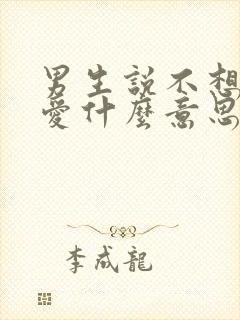 男生說不想
愛什麼意思
李成龍